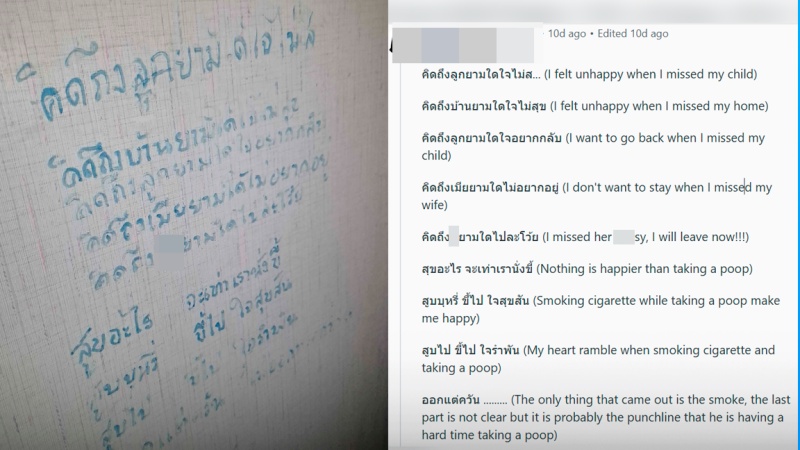 คิดถึงลูกยามใดใจไม่ส
คิดถึงบ้านยามใดใจไม่สุข
คิดถึงลูกยามใดใจอยากกลับ
คิดถึงเมียยามใดไม่อยากอยู่
คิดถึง ยามใดไปละโว้ย
สุขอะไร จะเท่าเรานั่งขี้
สูบบุหรี่ ขี้ไป ใจสุขสัน
สูบไป ขี้ไป
10d ago • Edited 10d ago
คิดถึงลูกยามใดใจไม่ส... (I felt unhappy when I missed my child)
คิดถึงบ้านยามใดใจไม่สุข (I felt unhappy when I missed my home)
คิดถึงลูกยามใดใจอยากกลับ (I want to go back when I missed my
child)
คิดถึงเมียยามใดไม่อยากอยู่ (I don't want to stay when I missed my
wife)
คิดถึง ยามใดไปละโว้ย (I missed her sy, I will leave now!!!)
สุขอะไร จะเท่าเรานั่งขี้ (Nothing is happier than taking a poop)
สูบบุหรี่ ขี้ไป ใจสุขสัน (Smoking cigarette while taking a poop make
me happy)
สูบไป ขี้ไป ใจรำพัน (My heart ramble when smoking cigarette and
taking a poop)
ออกแต่ควัน ......... (The only thing that came out is the smoke, the last
part is not clear but it is probably the punchline that he is having a
hard time taking a poop)